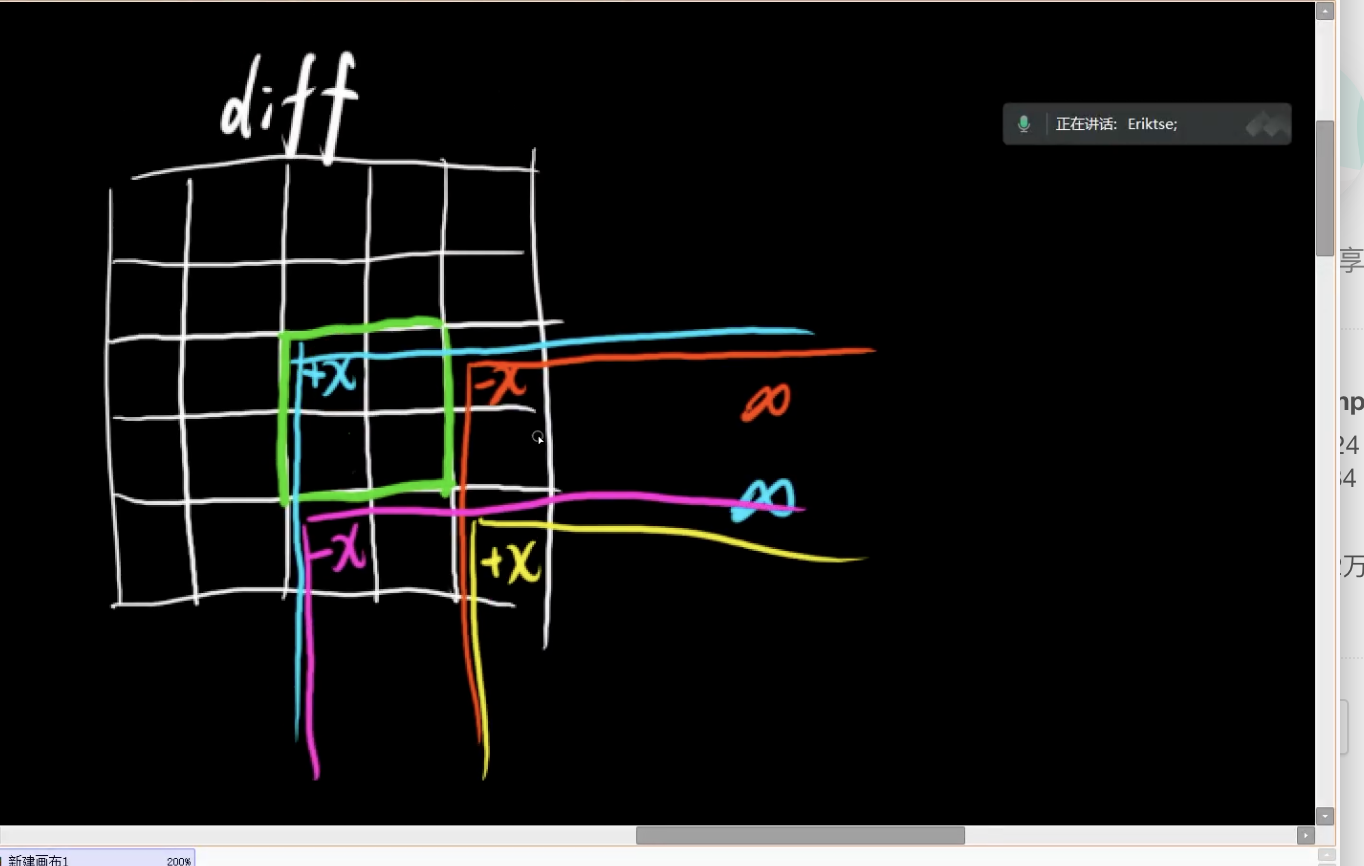 diff
正在讲话: Eriktse;
享
+x
-x
∞
np
24
34
∞
-x
+x
万
新建画布1
200%